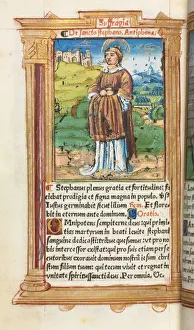 Suffragia
De sancto stephano. Antiphona.
Stephanus plenus gratia et fortitudine: fa
ciebat prodigia et signa magna in populo. ℣
Iustus germinabit sicut lilium ℟. Et flore
bit in eternum ante dominum. Oratio.
Omnipotens sempiterne deus qui primi
tias martyrum in beati leuite stephani
sanguine dedicasti: tribue quesumus vt pro no
bis intercessor existat qui pro suis etiam per
secutoribus exorauit dominum nostrum iesum chri
stum filium tuum: qui tecum viuit et regnat in
vnitate spiritussancti deus Per omnia. Oc.